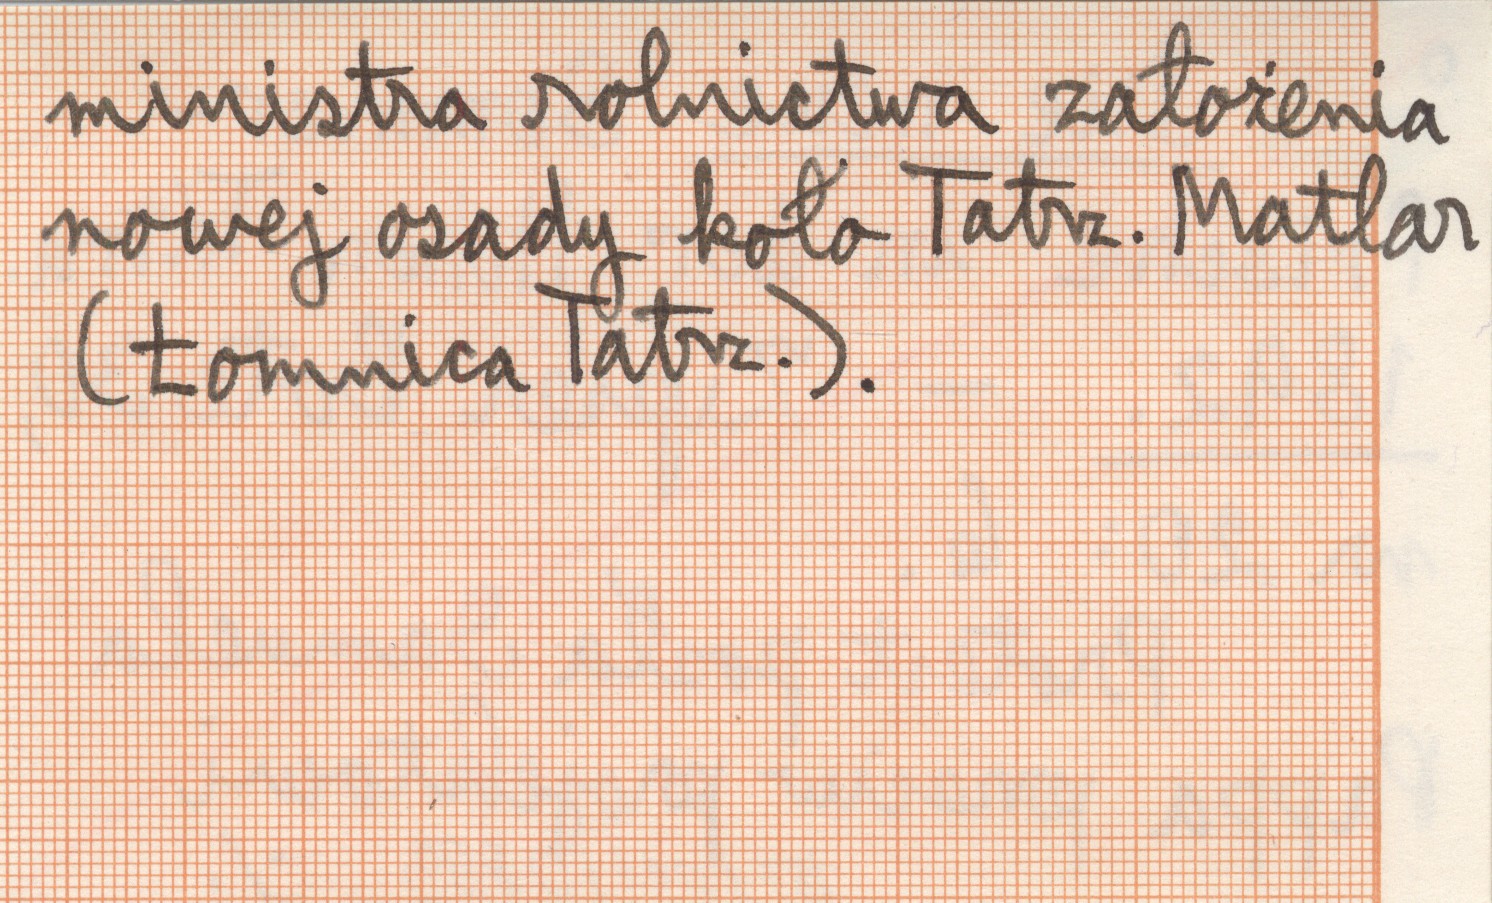 ministra rolnictwa założenia
nowej osady koło Tatrz. Matlar
(Łomnica Tatrz.).